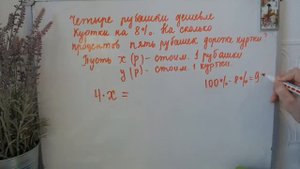 Четыре рубашки дешевле
куртки на 8%. На сколько
процентов пять рубашек дороже куртки
Пусть х (р) - стоим. 1 рубашки
у (р) - стоим. 1 куртки.
100% - 8% = 9
4 · х =